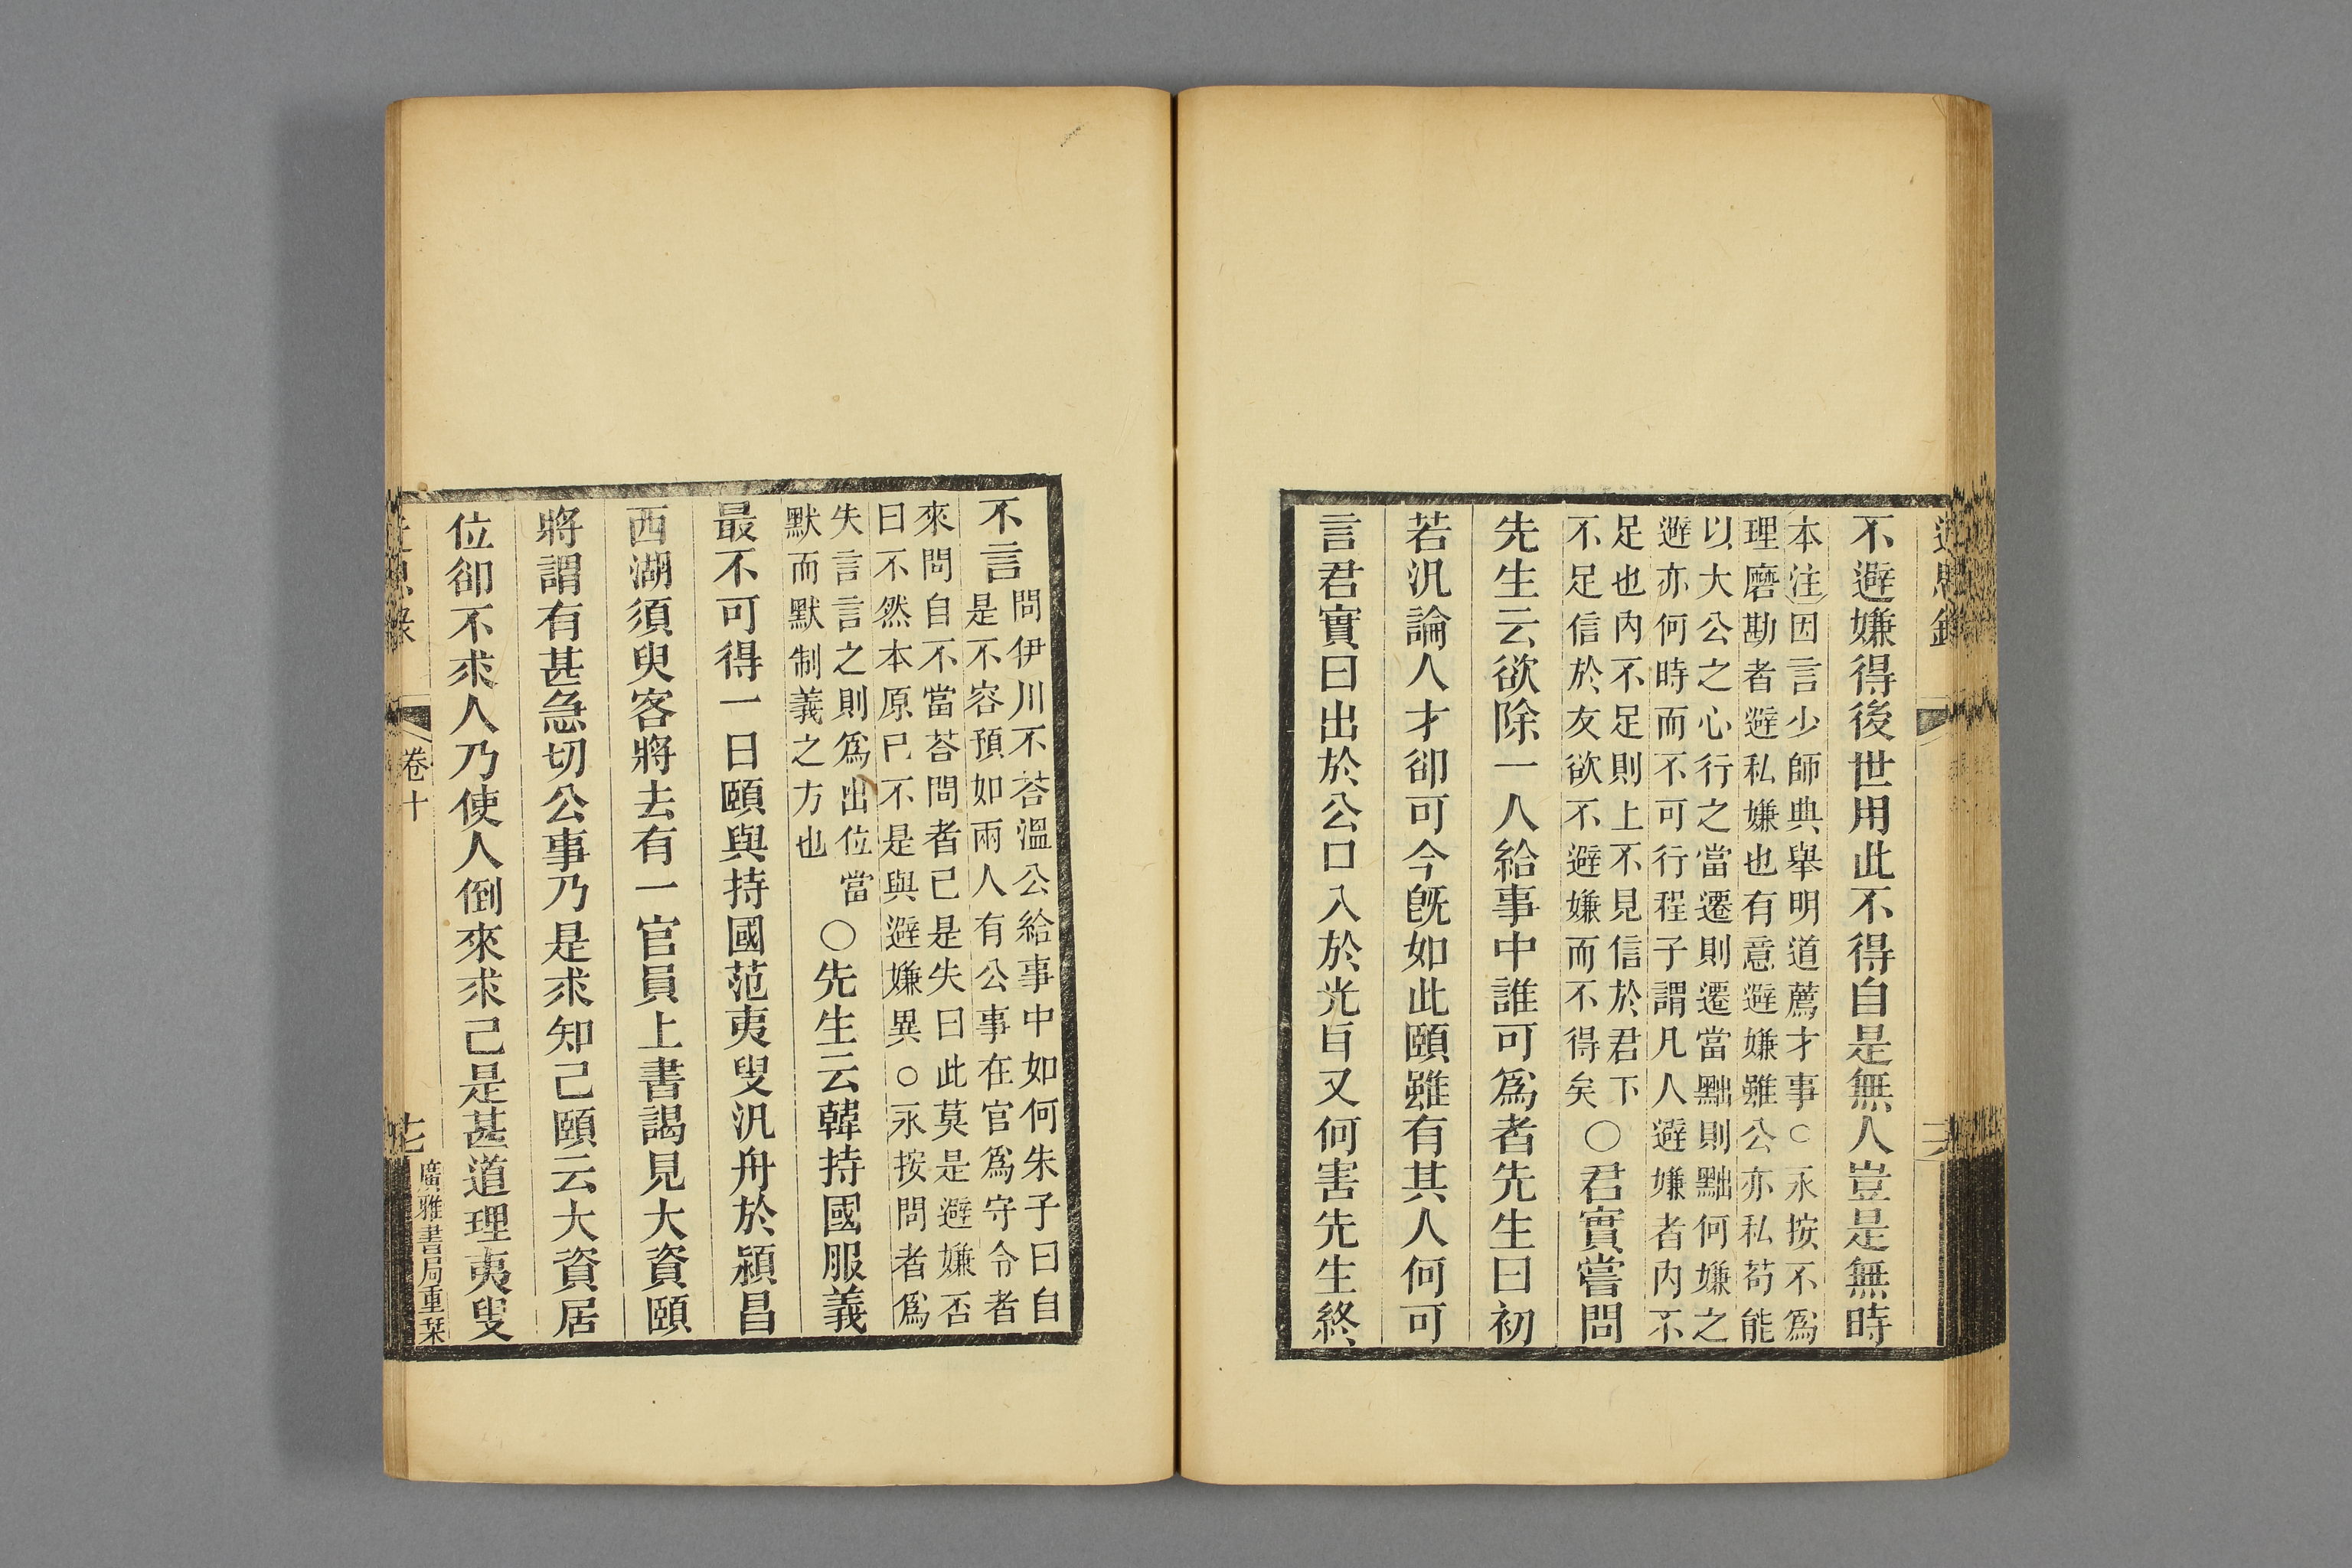 近思錄
不避嫌得後世用此不得自是無人豈是無時
本注因言少師典舉明道薦才事○永按不爲
理磨勘者避私嫌也有意避嫌雖公亦私苟能
以大公之心行之當遷則遷當黜則黜何嫌之
避亦何時而不可行程子謂凡人避嫌者内不
足也内不足則上不見信於君下
不足信於友欲不避嫌而不得矣
○君實嘗問
先生云欲除一人給事中誰可爲者先生曰初
若汎論人才卻可今旣如此頤雖有其人何可
言君實曰出於公口入於光耳又何害先生終
不言
問伊川不荅溫公給事中如何朱子曰自
是不容預如兩人有公事在官爲守令者
來問自不當荅問者已是失曰此莫是避嫌否
曰不然本原已不是與避嫌異○永按問者爲
失言言之則爲出位當
默而默制義之方也
○先生云韓持國服義
最不可得一日頤與持國范夷叟汎舟於潁昌
西湖須臾客將去有一官員上書謁見大資頤
將謂有甚急切公事乃是求知己頤云大資居
位卻不求人乃使人倒來求己是甚道理夷叟
近思錄
卷十
十七
廣雅書局重栞